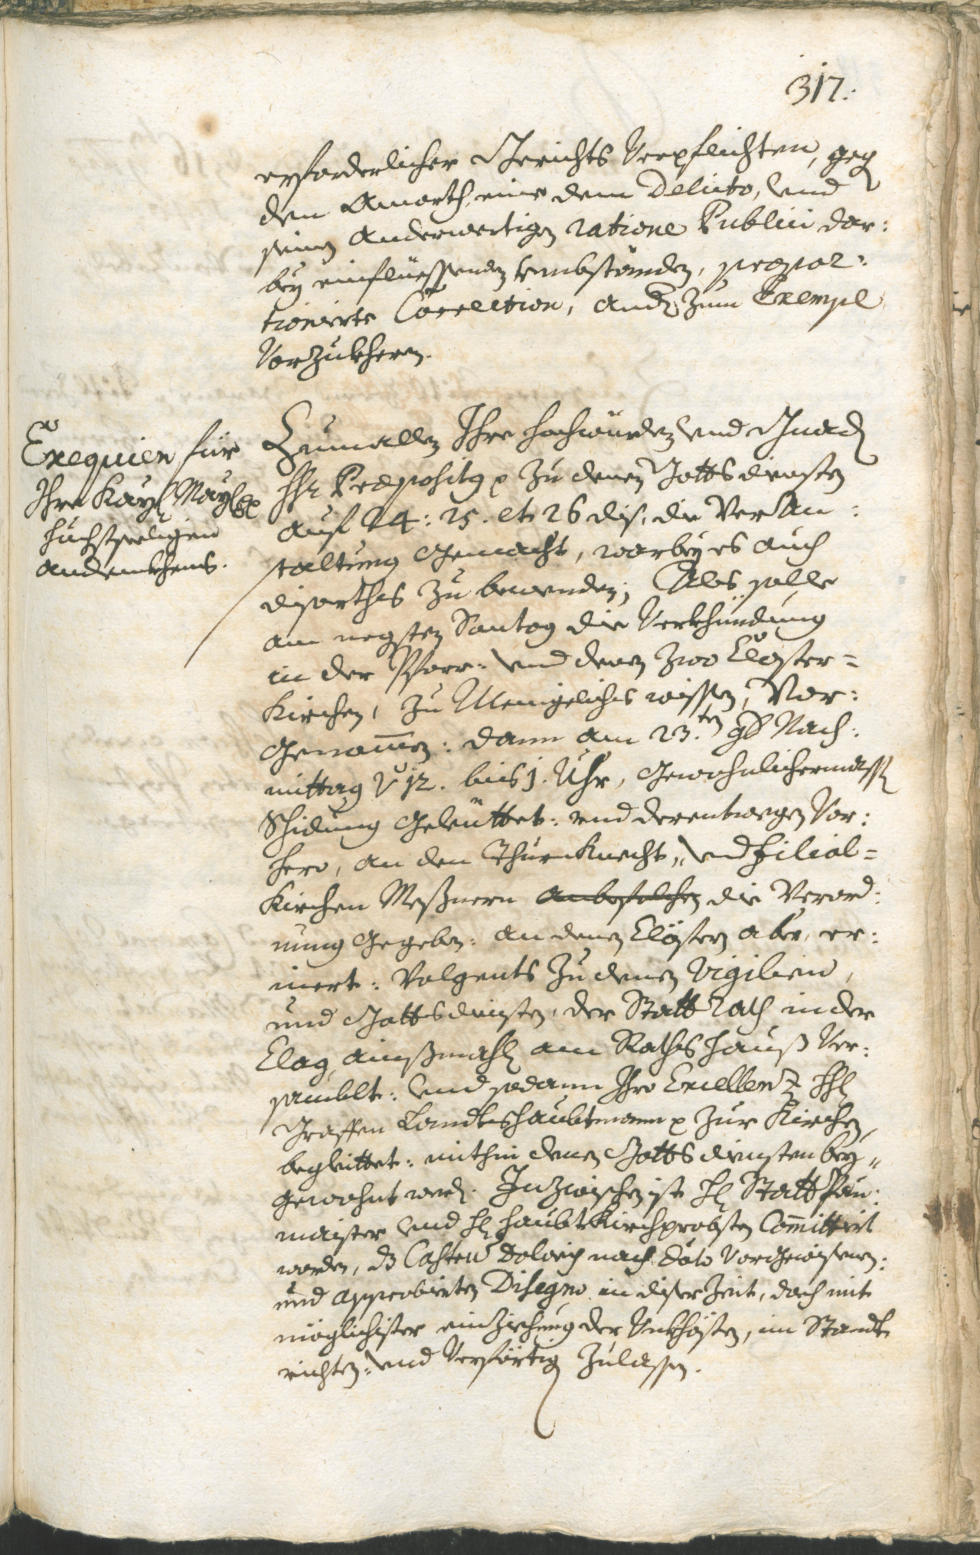 317.
erforderlicher Gerichts Verpflichten, geg
den Amorth eine dem Delicto, und
seinen anderwertigen ratione Publici dar:
bey einfliessenden Umbständen, propor:
tionierte Correction, andern zum Exempl
Vorzukheren.
Exequien für
Ihro Kayl: May: 
höchstseeligen
andenkhens.
Zumallen Ihro Hochwürden und Gnaden
Hr: Præpositus p zu denen Gottsdiensten
auf 24: 25. et 26 dis, die Veran:
staltung gemacht, warbey es auch
diserths zu bewenden; Als solle
am negsten Sontag die Verkhündung
in der Pfarr: und denen zwo Closter=
Kirchen, zu Menigeliches wissen, Vor:
genommen: dann am 23.ten Nach:
mittag v 12. bis 1. Uhr, gewohnlichermass
Schidung geleüttet: und derentwegen Vor:
hero, an den Thurnknecht, und Filial=
Kirchen Messnern anbefolchen die Verord:
nung gegeben: an denen Clöstern aber, er:
inert: Volgents zu denen Vigilien,
und Gottsdiensten, der Statt Rath in der
Clag ainssmahls am Rathshauss Ver:
samblt: und sodann Ihro Excellenz Hl
Graffen Landtshaubtmann p zur Kirchen
begleittet: mithin denen Gottsdiensten bey„
gewohnt werd: Inzwischen ist Hl Statt Pau:
maister und Hl Haubt Kirchprobsten Committiert
worden, ds Casten Doloris nach dato Vorgewisenen:
und approbierten Disegno in diser Zeit, doch mit
möglichister einziehung der Unkhösten, im Standt
richten: und Verförtig zulassen.